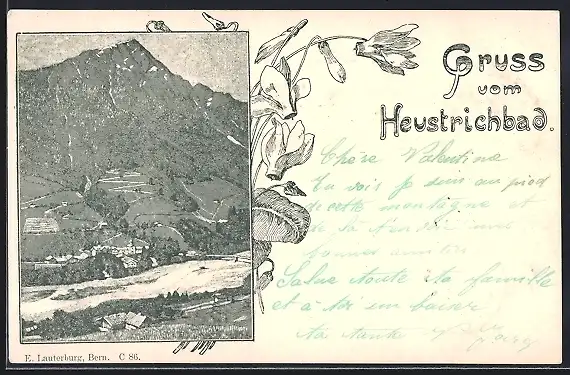 Gruss
vom
Heustrichbad.
Chère Valentine
Tu vois je suis au pied
de cette montagne et
de là t'envoie une
bonne amitié
Salue toute ta famille
et à toi un baiser
ta tante
E. Lauterburg, Bern. C 86.